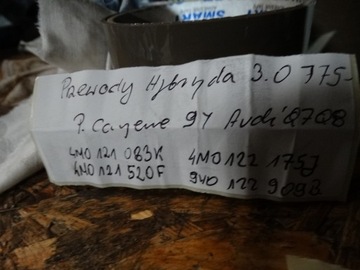 SMART
Przewody Hybryda 3.0 TTS
P. Cayene 9Y Audi Q7Q8
4M0 121 083K 4M0 122 175J
4M0 121 520F 9Y0 122 909B